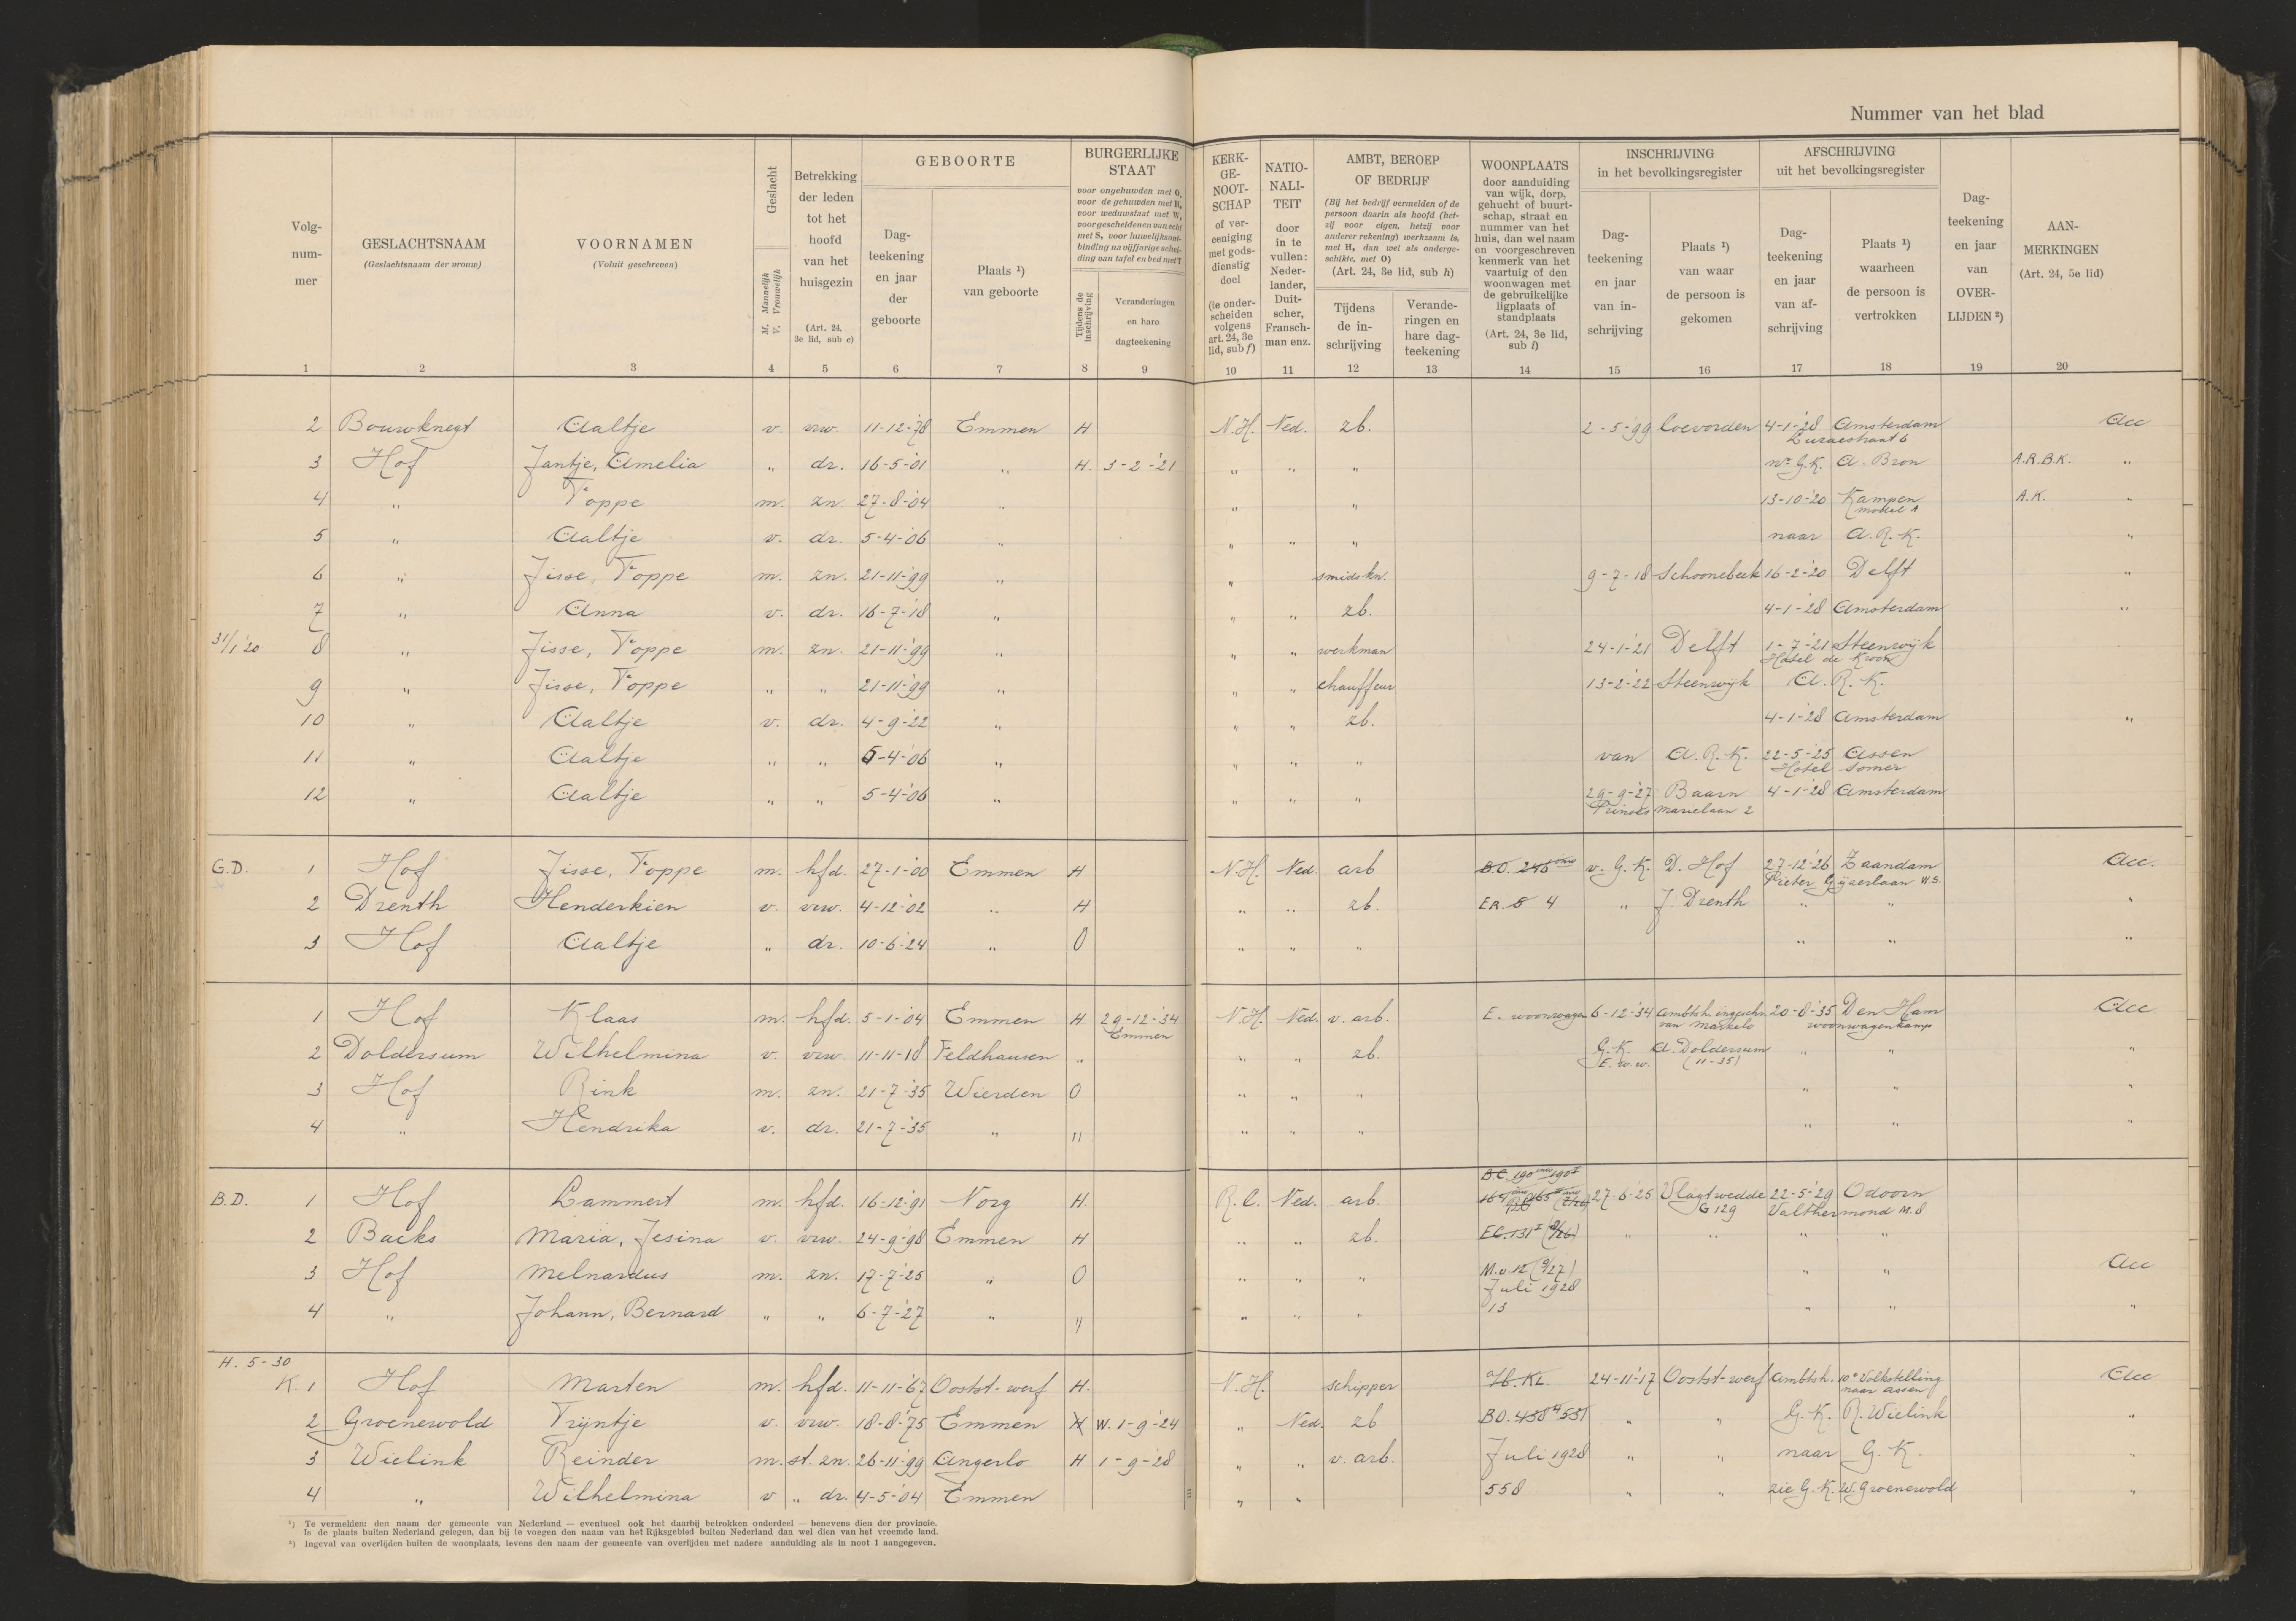 Nummer van het blad
Volgnummer
GESLACHTSNAAM
(Geslachtsnaam der vrouw)
VOORNAMEN
(Voluit geschreven)
Geslacht
M. Mannelijk
V. Vrouwelijk
Betrekking der leden tot het hoofd van het huisgezin
(Art. 24, 3e lid, sub c)
GEBOORTE
Dagteekening en jaar der geboorte
Plaats ¹) van geboorte
BURGERLIJKE STAAT
Tijdens de inschrijving
Veranderingen en hare dagteekening
KERKGENOOTSCHAP
of vereeniging met godsdienstig doel
(te onderscheiden volgens art. 24, 3e lid, sub f)
NATIONALITEIT
door in te vullen: Nederlander, Duitscher, Franschman enz.
AMBT, BEROEP OF BEDRIJF
(Bij het bedrijf vermelden of de persoon daarin als hoofd (hetzij voor eigen, hetzij voor anderer rekening) werkzaam is, met H, dan wel als ondergeschikte, met O)
(Art. 24, 3e lid, sub h)
Tijdens de inschrijving
Veranderingen en hare dagteekening
WOONPLAATS
door aanduiding van wijk, dorp, gehucht of buurtschap, straat en nummer van het huis, dan wel naam en voorgeschreven kenmerk van het vaartuig of den woonwagen met de gebruikelijke ligplaats of standplaats
(Art. 24, 3e lid, sub i)
INSCHRIJVING in het bevolkingsregister
Dagteekening en jaar van inschrijving
Plaats ¹) van waar de persoon is gekomen
AFSCHRIJVING uit het bevolkingsregister
Dagteekening en jaar van afschrijving
Plaats ¹) waarheen de persoon is vertrokken
Dagteekening en jaar van OVERLIJDEN ²)
AANMERKINGEN
(Art. 24, 5e lid)
1 2 3 4 5 6 7 8 9 10 11 12 13 14 15 16 17 18 19 20
2 Bouwknegt Aaltje v. vrw. 11-12-'78 Emmen H N.H. Ned. zb. 2-5-'99 Coevorden 4-1-'28 Amsterdam Acc
3 Hof Jantje, Amelia " dr. 16-5-'01 " H. 3-2-'21 " " " nr G.K. A. Bron A.R.B.K. "
4 " Foppe m. zn. 27-8-'04 " " " 13-10-'20 Kampen A.K. "
model A
5 " Aaltje v. dr. 5-4-'06 " " " " naar A.R.K. "
6 " Jisse, Foppe m. zn. 21-11-'99 " " smidskn. 9-7-'18 Schoonebeek 16-2-'20 Delft "
7 " Anna v. dr. 16-7-'18 " " " zb. 4-1-'28 Amsterdam "
31/1'20 8 " Jisse, Foppe m. zn. 21-11-'99 " " " werkman 24-1-'21 Delft 1-7-'21 Steenwijk
Hotel de Kroon
9 " Jisse, Foppe " " 21-11-'99 " " " chauffeur 13-2-'22 Steenwijk A.R.K.
10 " Aaltje v. dr. 4-9-'22 " " " zb. 4-1-'28 Amsterdam "
11 " Aaltje " " 5-4-'06 " " " " van A.R.K. 22-5-'25 Assen
Hotel Somer
12 " Aaltje " " 5-4-'06 " " " " 29-9-'27 Baarn 4-1-'28 Amsterdam
Prinses Marielaan 2
G.D. 1 Hof Jisse, Foppe m. hfd. 27-1-'00 Emmen H N.H. Ned. arb B.O. 245 v. G.K. D. Hof 27-12-'26 Zaandam Acc.
2 Drenth Henderkien v. vrw. 4-12-'02 " H " " zb. ER. 8 4 " J. Drenth " " "
3 Hof Aaltje " dr. 10-6-'24 " O " " " " " "
1 Hof Klaas m. hfd. 5-1-'04 Emmen H 29-12-'34 N.H. Ned. v. arb. E. woonwagen 6-12-'34 ambtsh. ingeschr. 20-8-'35 Den Ham Acc
Emmen van Markelo woonwagenkamp
2 Doldersum Wilhelmina v. vrw. 11-11-'18 Feldhausen " " " zb. G.K. A. Doldersum " " "
E.w.w. (11-35)
3 Hof Rink m. zn. 21-7-'35 Wierden O " " " " " "
4 " Hendrika v. dr. 21-7-'35 " " " " " " " "
B.D. 1 Hof Lammert m. hfd. 16-12-'91 Norg H. R.C. Ned. arb. 27-6-'25 Vlagtwedde 22-5-'29 Odoorn
G 129 Valthermond M.8
2 Backs Maria, Jesina v. vrw. 24-9-'98 Emmen H " " zb. EC. 131 " " " "
3 Hof Meinardus m. zn. 17-7-'25 " O " " " M.v 12 (9/27) " " Acc
Juli 1928
4 " Johann, Bernard " " 6-7-'27 " " " " " 13 " " "
H. 5-30
K. 1 Hof Marten m. hfd. 11-11-'67 Oostst-werf H. N.H. schipper Hb. KL. 24-11-'17 Oostst-werf Ambtsh. 10e Volkstelling Acc
naar Assen
2 Groenewold Trijntje v. vrw. 18-8-'75 Emmen H W. 1-9-'24 " Ned. zb BO. 438 531 " " G.K. R. Wielink "
3 Wielink Reinder m. st. zn. 26-11-'99 Angerlo H 1-9-'28 " " v. arb. Juli 1928 " " naar G.K. "
4 " Wilhelmina v " dr. 4-5-'04 Emmen " " 558 " " zie G.K. W. Groenewold "
¹) Te vermelden: den naam der gemeente van Nederland — eventueel ook het daarbij betrokken onderdeel — benevens dien der provincie.
Is de plaats buiten Nederland gelegen, dan bij te voegen den naam van het Rijksgebied buiten Nederland dan wel dien van het vreemde land.
²) Ingeval van overlijden buiten de woonplaats, tevens den naam der gemeente van overlijden met nadere aanduiding als in noot 1 aangegeven.